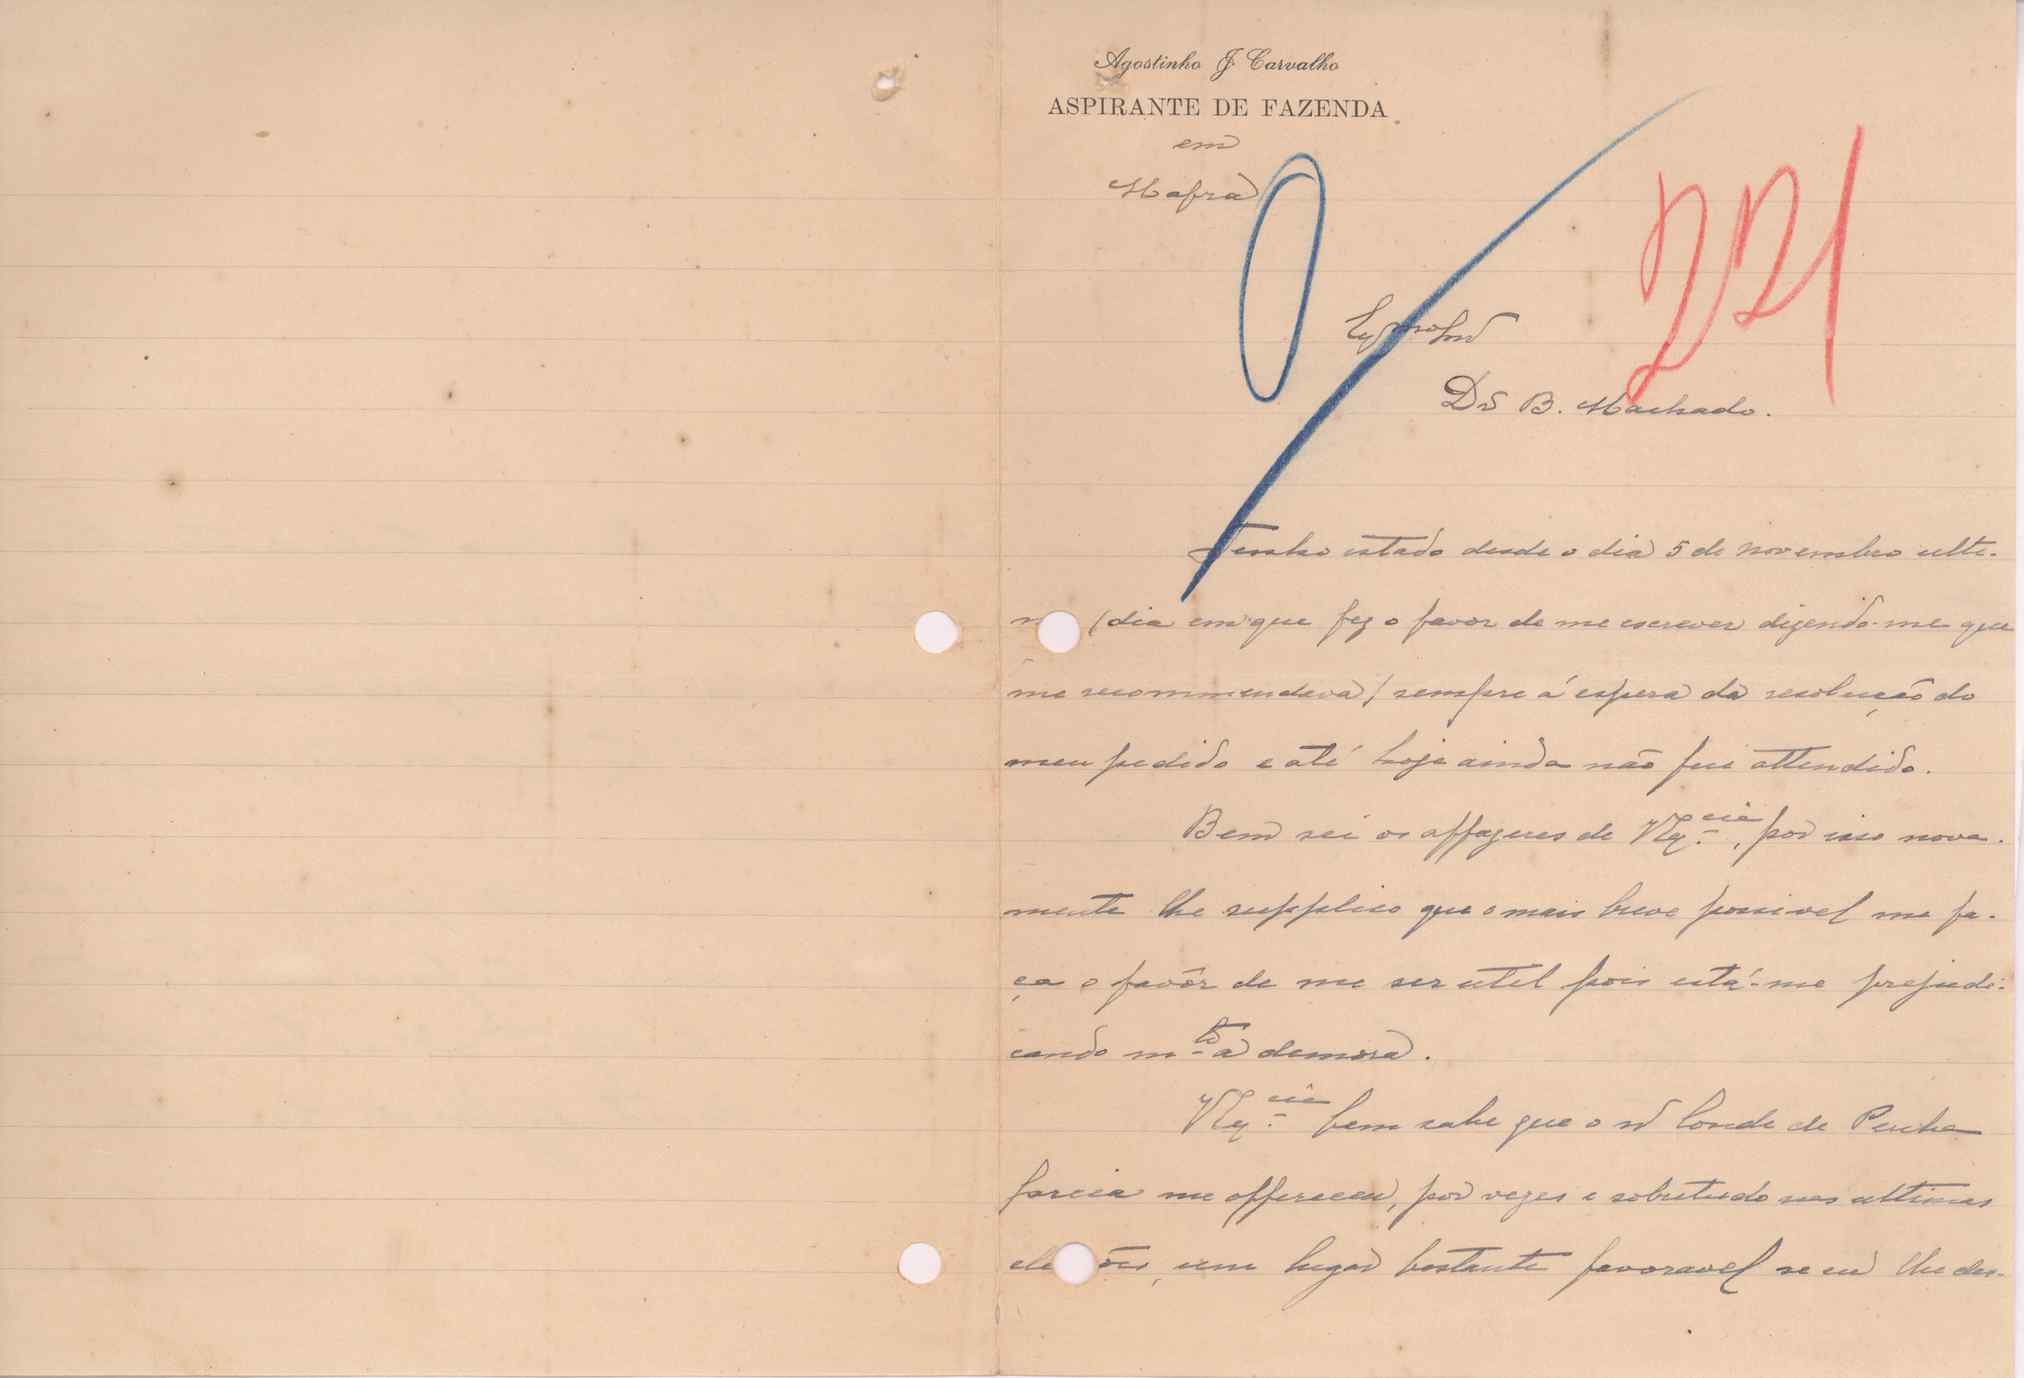 Agostinho J Carvalho
ASPIRANTE DE FAZENDA
em
Mafra
Exmo Snr
Dr B. Machado.
Tenho estado desde o dia 5 de novembro ulti-
(dia em que fez o favor de me escrever dizendo-me que
me recommendava) sempre á espera da resolução do
meu pedido e até hoje ainda não fui attendido.
Bem sei os affazeres de VEx.cia, por isso nova-
mente lhe supplico que o mais breve possivel me fa-
ça o favôr de me ser util pois está-me prejudi-
cando m.to a demora.
VEx.cia bem sabe que o sr Conde de Penha
Garcia me offereceu, por vezes e sobretudo nas ultimas
ele ões, um lugar bastante favoravel se eu lhe des-